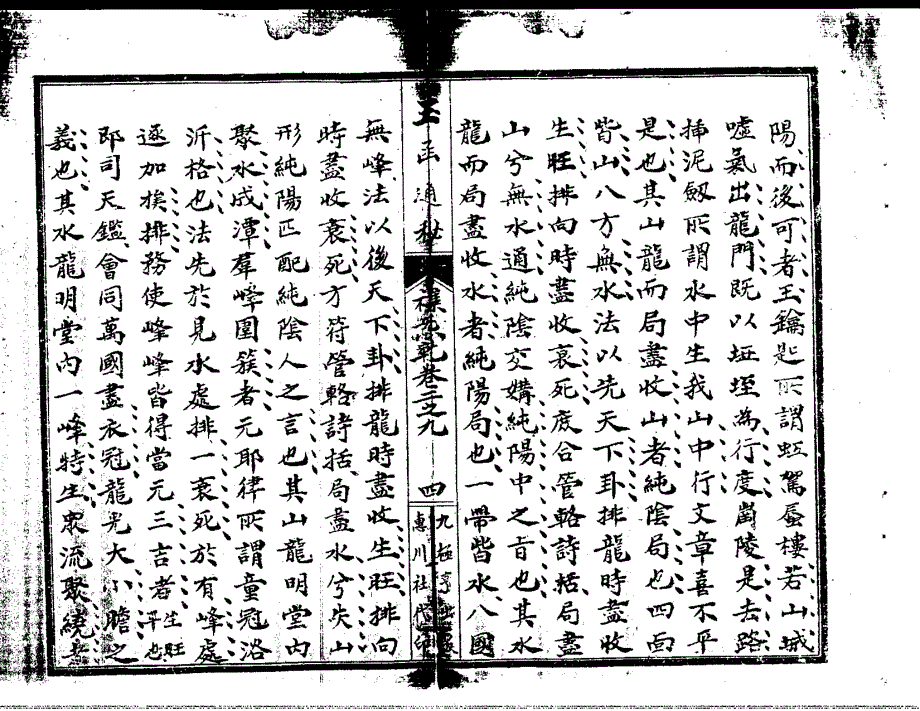 陽而後可者玉鑰匙所謂虹駕蜃樓若山城
噓氣出龍門既以坵垤為行度崗陵是去路
揷泥劔所謂水中生我山中行文章喜不平
是也其山龍而局盡收山者純陰局也四面
皆山八方無水法以先天下卦排龍時盡收
生旺排向時盡收衰死庶合管輅詩括局盡
山兮無水通純陰交媾純陽中之旨也其水
龍而局盡收水者純陽局也一帶皆水八國
玉函通秘
卷二之九
四
惠川社
無峰法以後天下卦排龍時盡收生旺排向
時盡收衰死方符管輅詩括局盡水兮失山
形純陽匹配純陰人之言也其山龍明堂內
聚水成潭羣峰圍簇者元耶律所謂童冠浴
沂格也法先於見水處排一衰死於有峰處
逐加挨排務使峰峰皆得當元三吉者生旺平也
即司天鑑會同萬國盡衣冠龍光大小瞻之
義也其水龍明堂內一峰特生眾流聚繞者